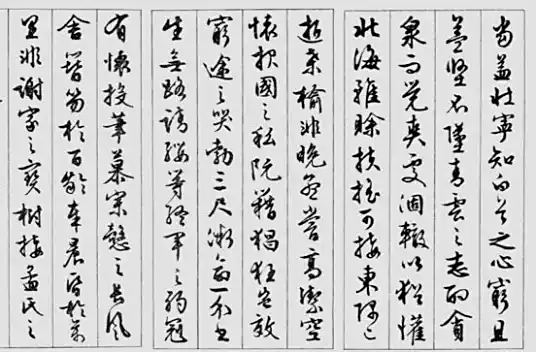 當益壯寧知白首之心窮且
益堅不墜青雲之志酌貪
泉而覺爽處涸轍以猶懽
北海雖賒扶搖可接東隅已
逝桑榆非晚孟嘗高潔空
懷報國之私阮籍猖狂豈效
窮途之哭勃三尺微命一介書
生無路請纓等終軍之弱冠
有懷投筆慕宗慤之長風
舍簪笏於百齡奉晨昏於萬
里非謝家之寶樹接孟氏之